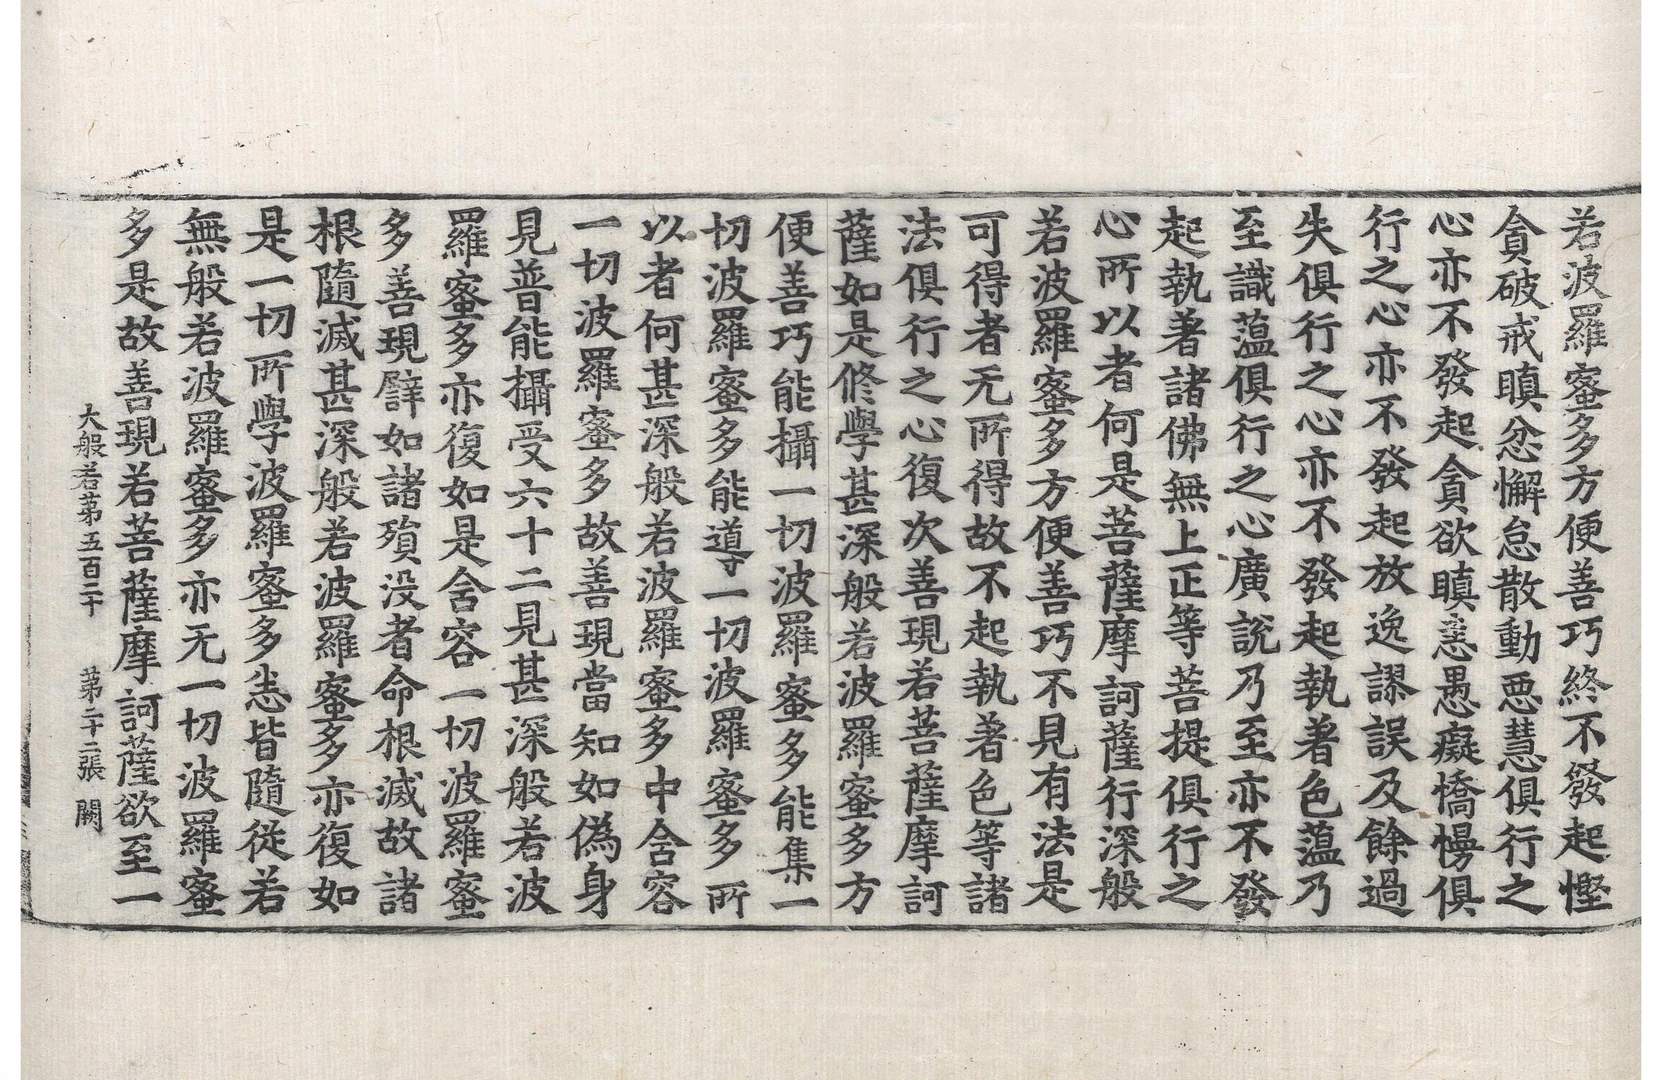 若波羅蜜多方便善巧終不發起慳
貪破戒瞋忿懈怠散動惡慧俱行之
心亦不發起貪欲瞋恚愚癡憍慢俱
行之心亦不發起放逸謬誤及餘過
失俱行之心亦不發起執著色蘊乃
至識蘊俱行之心廣說乃至亦不發
起執著諸佛無上正等菩提俱行之
心所以者何是菩薩摩訶薩行深般
若波羅蜜多方便善巧不見有法是
可得者无所得故不起執著色等諸
法俱行之心復次善現若菩薩摩訶
薩如是修學甚深般若波羅蜜多方
便善巧能攝一切波羅蜜多能集一
切波羅蜜多能導一切波羅蜜多所
以者何甚深般若波羅蜜多中含容
一切波羅蜜多故善現當知如偽身
見普能攝受六十二見甚深般若波
羅蜜多亦復如是含容一切波羅蜜
多善現譬如諸殞没者命根滅故諸
根隨滅甚深般若波羅蜜多亦復如
是一切所學波羅蜜多悉皆隨從若
無般若波羅蜜多亦无一切波羅蜜
多是故善現若菩薩摩訶薩欲至一
大般若第五百二十 第二十二張 闕